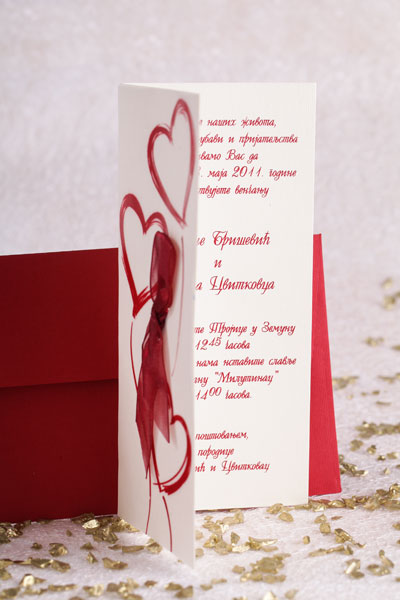 наших живота,
и пријатељства
Вас да
маја 2011. године
венчању
Бришевић
и
Цвитковца
Тројице у Земуну
12⁴⁵ часова
нама наставите славље
"Милутинац"
14⁰⁰ часова
поштовањем,
породице
и Цвитковац